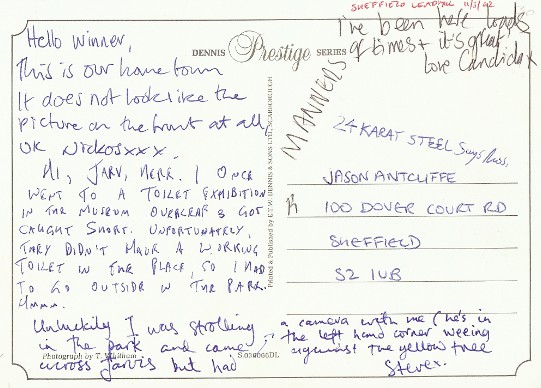 SHEFFIELD LEADMILL 11/3/92
I've been here loads
of times + it's great
love Candida x
Hello Winner,
This is our home town
It does not look like the
picture on the front at all
OK Nickosxxx.
DENNIS Prestige SERIES
MANNERS
Printed & Published by E.T.W. DENNIS & SONS LTD., SCARBOROUGH
HI, JARV, HERE. I ONCE
WENT TO A TOILET EXHIBITION
IN THE MUSEUM OVERLEAF & GOT
CAUGHT SHORT. UNFORTUNATELY,
THEY DIDN'T HAVE A WORKING
TOILET IN THE PLACE, SO I HAD
TO GO OUTSIDE IN THE PARK.
Unluckily I was strolling
in the park and came
across Jarvis but had
a camera with me (he's in
the left hand corner weeing
against the yellow tree
Stevex.
Photograph by T. Whillum
S.039066DL
24 KARAT STEEL Says Russ,
JASON ANTCLIFFE
100 DOVER COURT RD
SHEFFIELD
S2 1UB